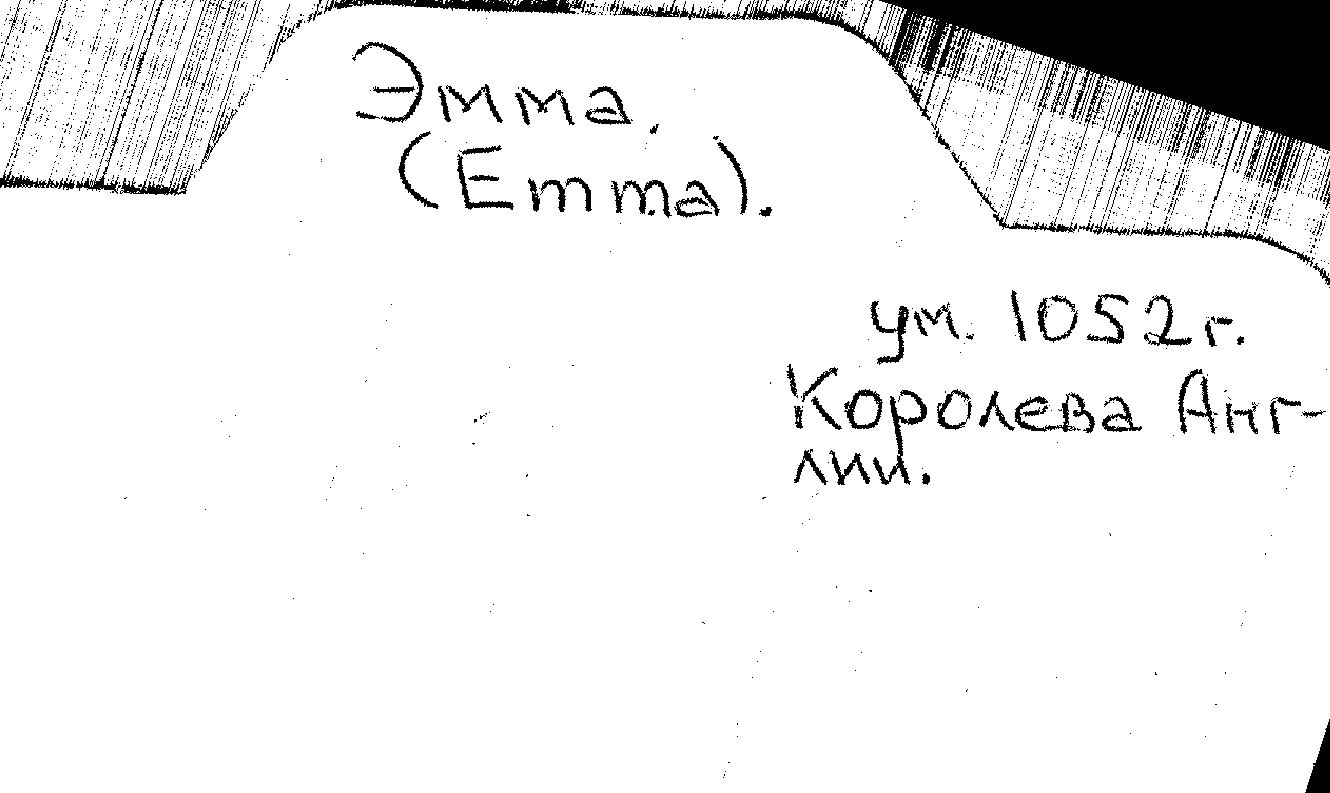 Эмма.
(Emma).
ум. 1052 г.
Королева Анг-
лии.